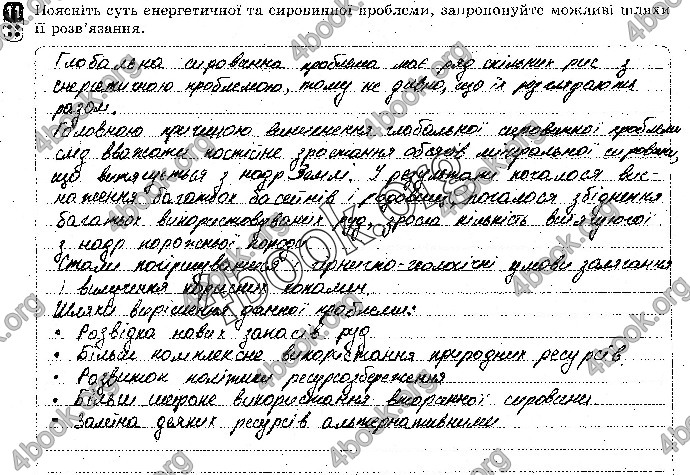 Поясніть суть енергетичної та сировинної проблеми, запропонуйте можливі шляхи
її розв'язання.
Глобальна сировинна проблема має ряд спільних рис з
енергетичною проблемою, тому не дивно, що їх розглядають
разом.
Головною причиною виникнення глобальної сировинної проблеми
слід вважати постійне зростання обсягів мінеральної сировини,
що витягується з надр Землі. У результаті почалося вис-
наження багатьох басейнів і родовищ, почалося збіднення
багатьох використовуваних руд, зросла кількість
з надр порожньої породи.
Стали погіршуватися гірничо-геологічні умови залягання
і вилучення корисних копалин.
Шляхи вирішення данної проблеми:
• Розвідка нових запасів руд
• Більш комплексне використання природних ресурсів.
• Розвиток політики ресурсозбереження
• Більш широке використання вторинної сировини
• Заміна деяких ресурсів альтернативними
4book.org